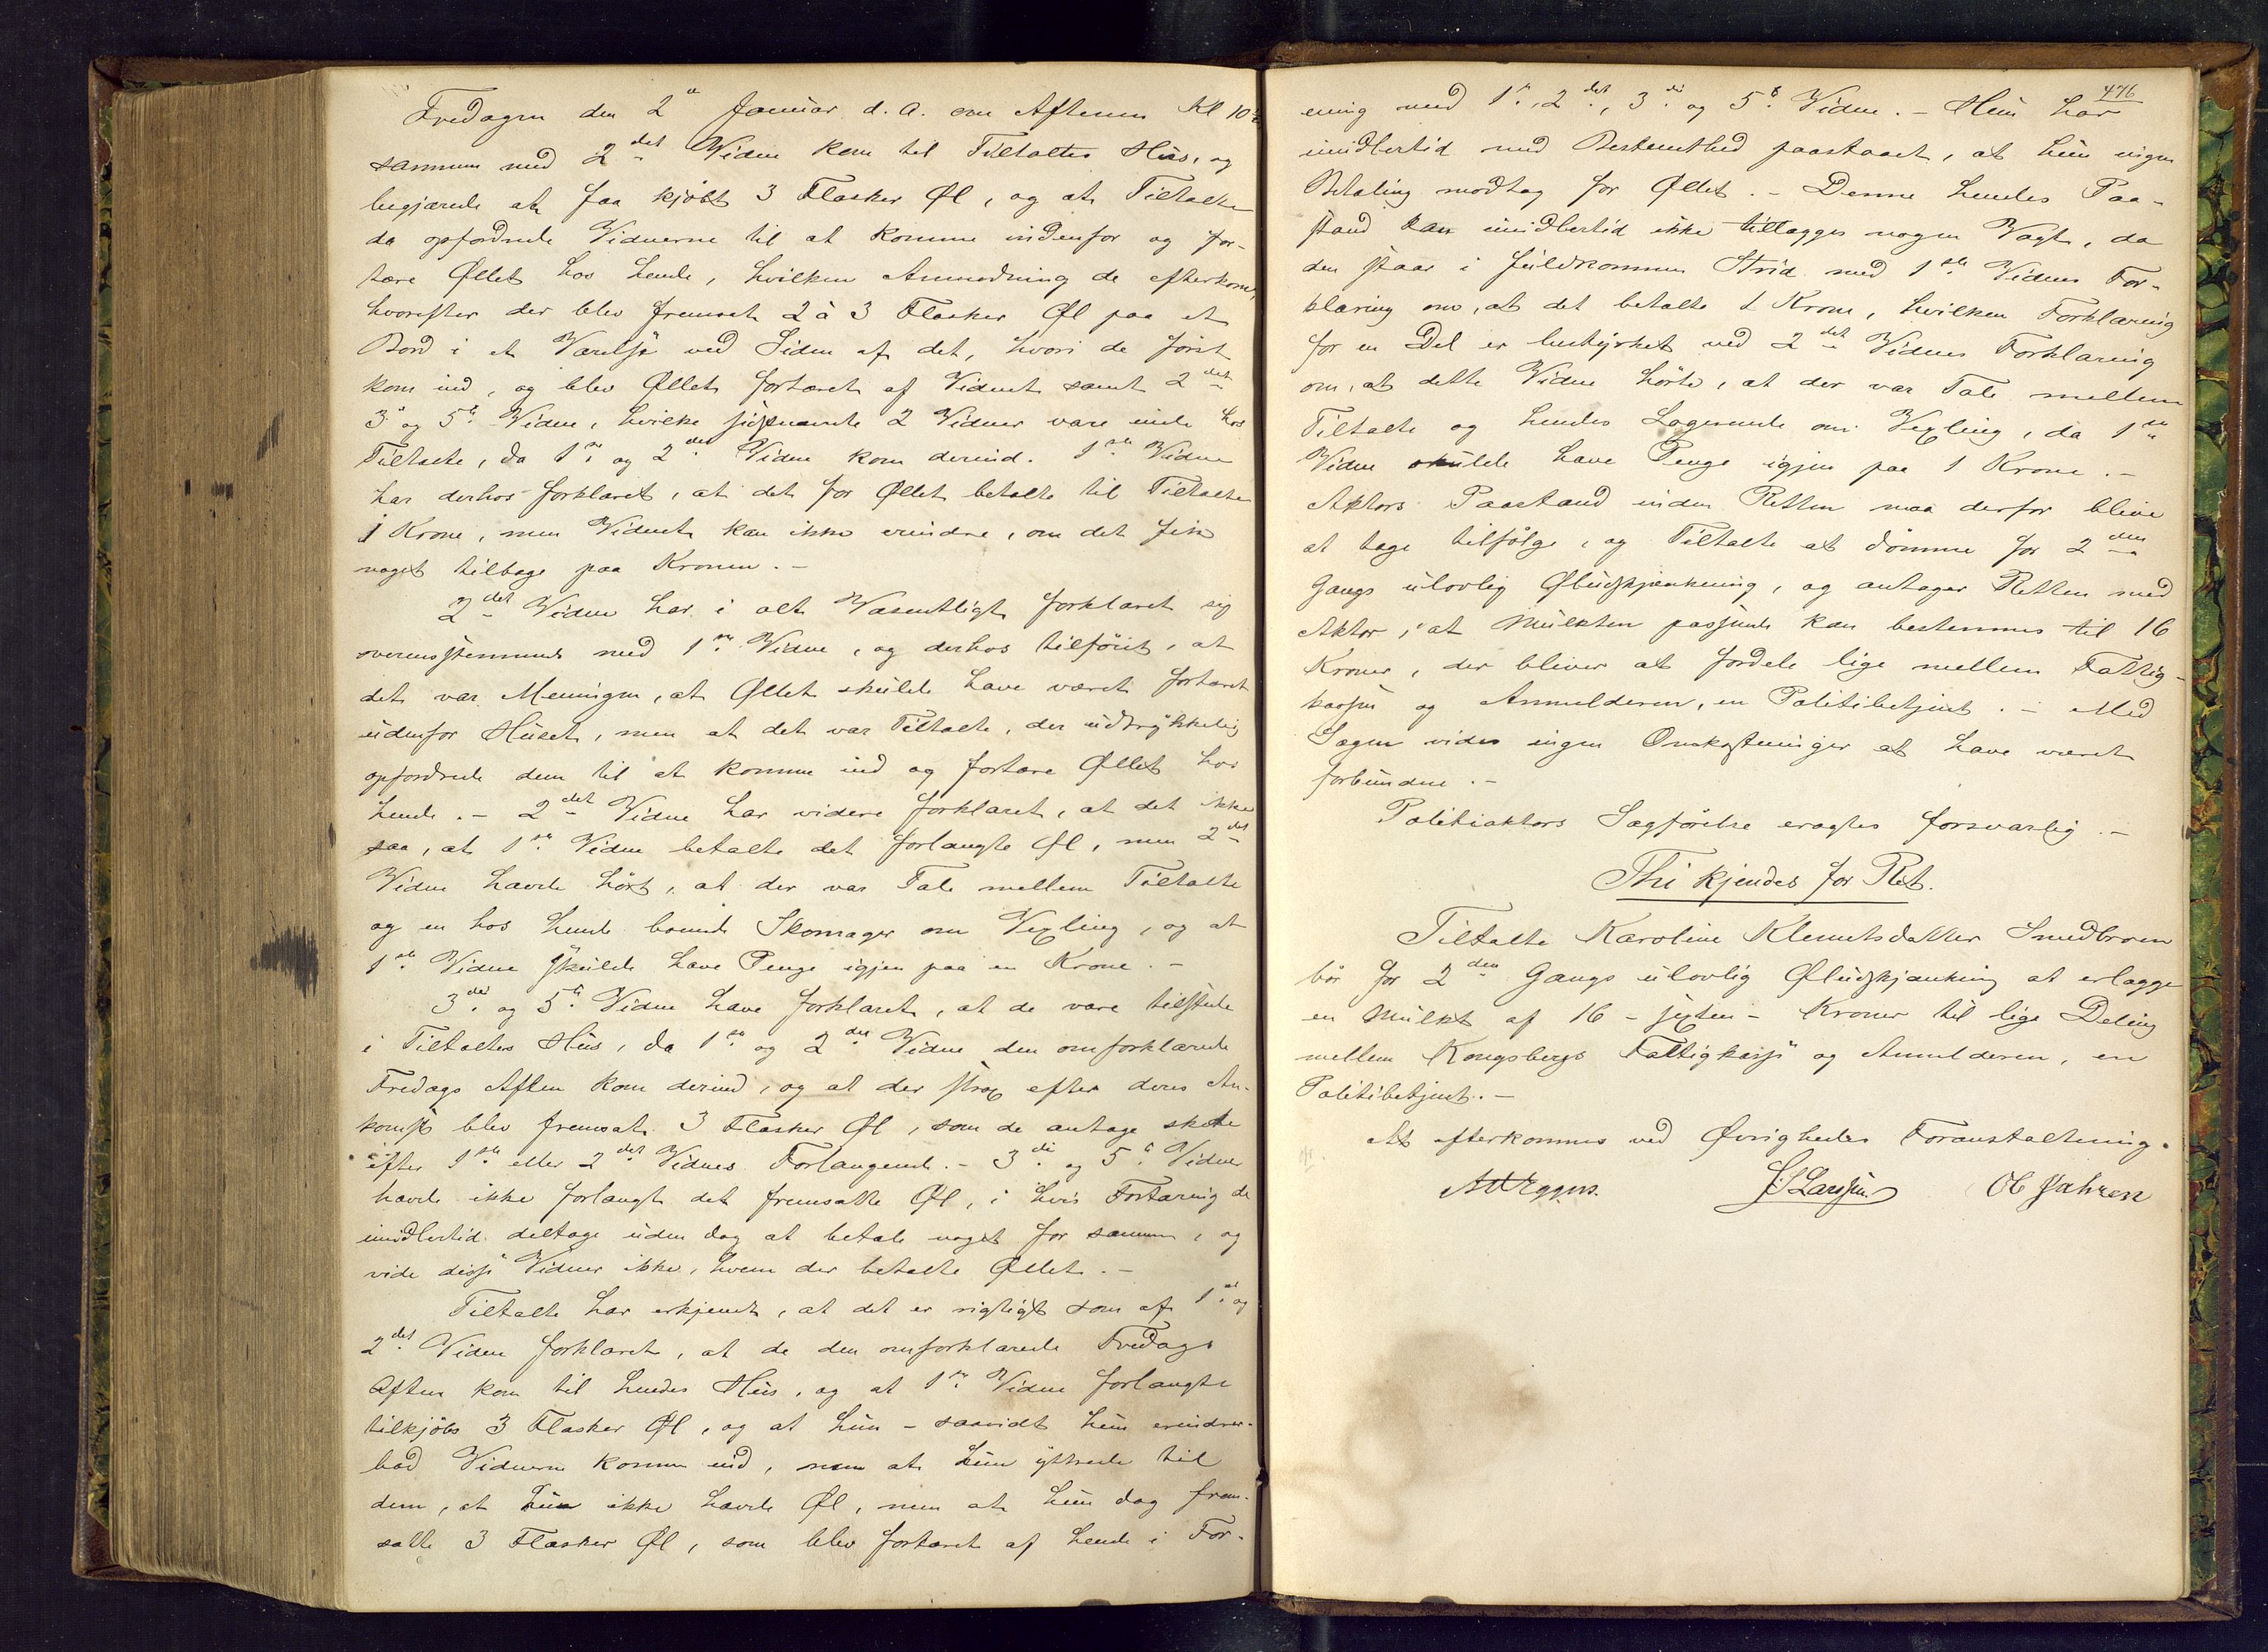 Fredagen den 2n Januar d. A. om Aftenen Kl 10½
sammen med 2det Vidne kom til Tiltaltes Huus, og
begjærede at faa kjøbt 3 Flasker Øl, og at Tiltalte
da opfordrede Vidnerne til at komme indenfor og for-
tære Øllet hos hende, hvilken Anmodning de efterkom,
hvorefter der blev fremsat 2 à 3 Flasker Øl paa et
Bord i et Værelse ved Siden af det, hvori de først
kom ind, og blev Øllet fortæret af Vidnet samt 2det
3die og 5te Vidne, hvilke sidstnævnte 2 Vidner vare inde hos
Tiltalte, da 1ste og 2det Vidne kom derind. 1ste Vidne
har derhos forklaret, at det for Øllet betalte til Tiltalte
1 Krone, men Vidnet kan ikke erindre, om det fik
noget tilbage paa Kronen. -
2det Vidne har i alt Væsentligt forklaret sig
overensstemmende med 1ste Vidne, og derhos tilføiet, at
det var Meningen, at Øllet skulde have været fortæret
udenfor Huset, men at det var Tiltalte, der udtrykkelig
opfordrede dem til at komme ind og fortære Øllet hos
hende. - 2det Vidne har videre forklaret, at det ikke
saa, at 1ste Vidne betalte det forlangte Øl, men 2det
Vidne havde hørt, at der var Tale mellem Tiltalte
og en hos hende boende Skomager om Vexling, og at
1ste Vidne skulde have Penge igjen paa en Krone. -
3die og 5te Vidne have forklaret, at de vare tilstede
i Tiltaltes Huus, da 1ste og 2det Vidne den omforklarede
Fredags Aften kom derind, og at der strax efter deres An-
komst blev fremsat 3 Flasker Øl, som de antage skete
efter 1ste eller 2det Vidnes Forlangende. - 3die og 5te Vidner
havde ikke forlangt det fremsatte Øl, i hvis Fortæring de
imidlertid deltage uden dog at betale noget for samme, og
vide disse Vidner ikke, hvem der betalte Øllet. -
Tiltalte har erkjendt, at det er rigtigt som af 1ste og
2det Vidne forklaret, at de den omforklarede Fredags
Aften kom til hendes Huus, og at 1ste Vidne forlangte
tilkjøbs 3 Flasker Øl, og at hun - saavidt hun erindrer -
bad Vidnerne komme ind, men at hun yttrede til
dem, at hun ikke havde Øl, men at hun dog frem-
satte 3 Flasker Øl, som blev fortæret af hende i For-
476
ening med 1ste, 2det, 3die og 5te Vidne. - Hun har
imidlertid med Bestemthed paastaaet, at hun ingen
Betaling modtog for Øllet. - Denne hendes Paa-
stand kan imidlertid ikke tillægges nogen Vægt, da
den staar i fuldkommen Strid med 1ste Vidnes For-
klaring om, at det betalte 1 Krone, hvilken Forklaring
for en Del er bestyrket ved 2det Vidnes Forklaring
om, at dette Vidne hørte, at der var Tale mellem
Tiltalte og hendes Logerende om Vexling, da 1ste
Vidne skulde have Penge igjen paa 1 Krone. -
Aktors Paastand inden Retten maa derfor blive
at tage tilfølge, og Tiltalte at dømme for 2den
Gangs ulovlig Øludskjænkning, og antager Retten med
Aktor, at Mulkten passende kan bestemmes til 16
Kroner, der bliver at fordele lige mellem Fattig-
kassen og Anmelderen, en Politibetjent. - Med
Sagen vides ingen Omkostninger at have været
forbundne. -
Politiaktors Sagførelse eragtes forsvarlig. -
Thi kjendes for Ret.
Tiltalte Karoline Klemetsdatter Smedbroen
bør for 2den Gangs ulovlig Øludskjænking at erlægge
en Mulkt af 16 - sexten - Kroner til lige Deling
mellem Kongsbergs Fattigkasse og Anmelderen, en
Politibetjent. -
At efterkommes ved Øvrighedes Foranstaltning.
Eggers. Larssen Ol Jahren